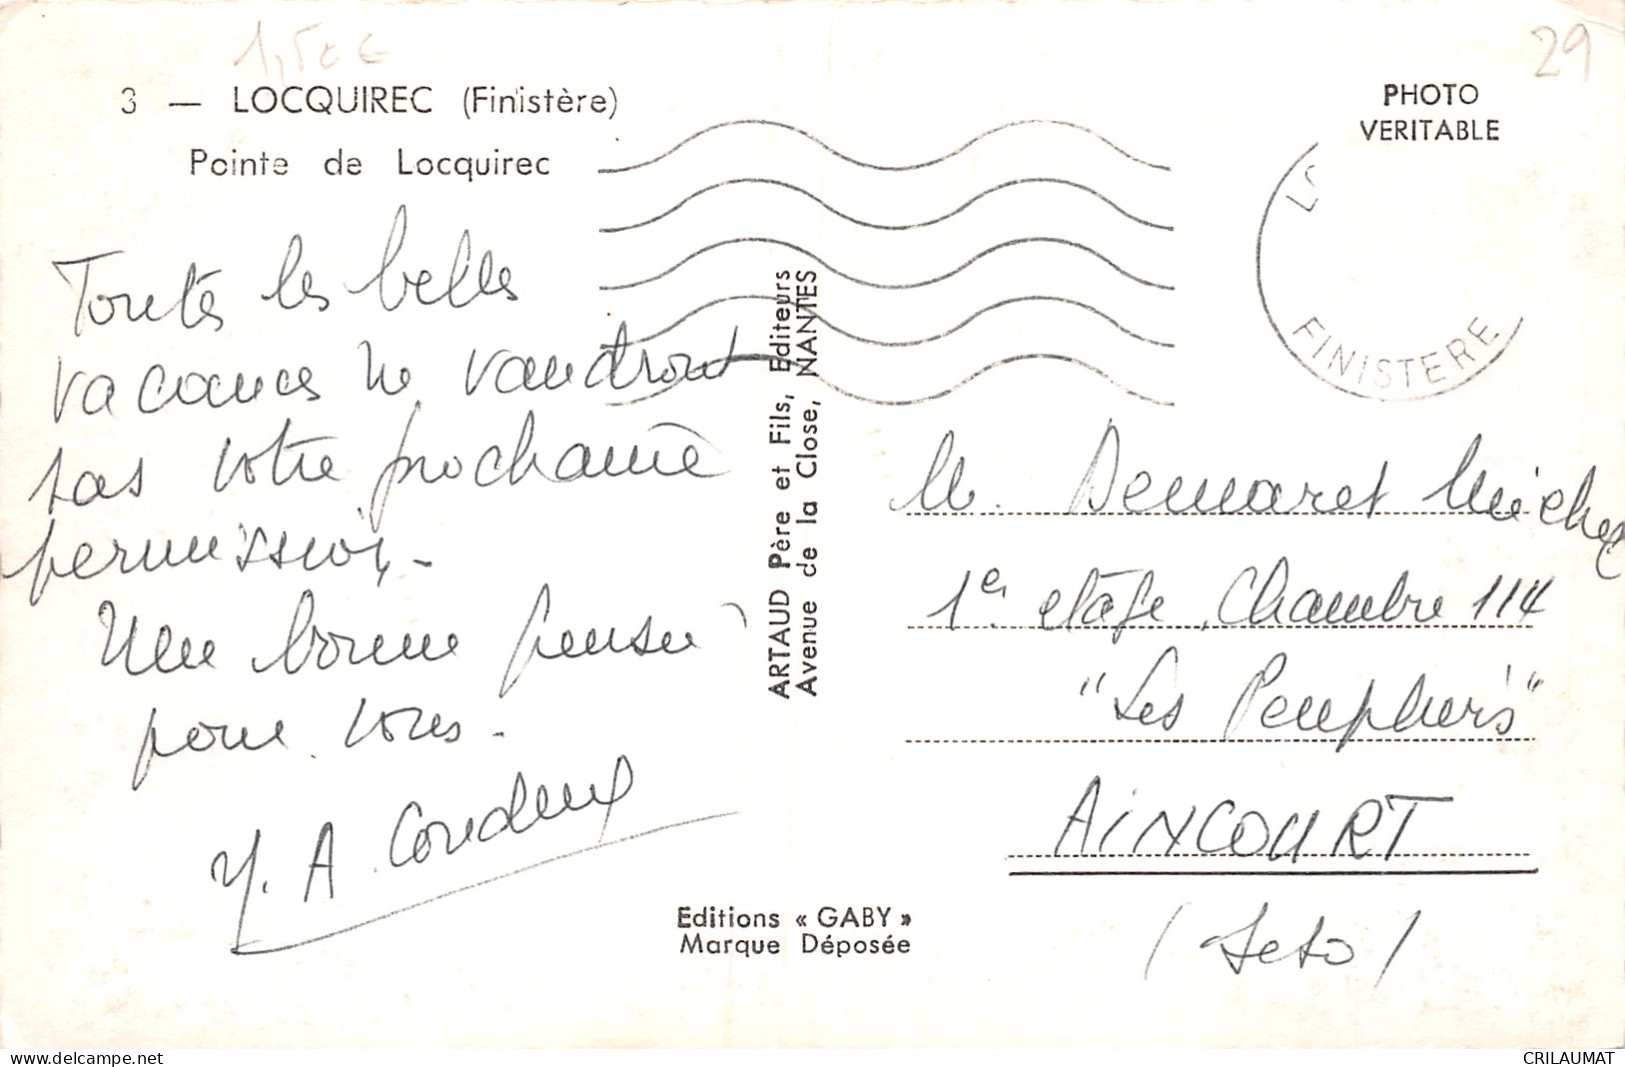 1,50€
29
3 — LOCQUIREC (Finistère)
Pointe de Locquirec
PHOTO
VERITABLE
FINISTERE
Toutes les belles
vacances ne vaudront
pas votre prochaine
permission.
Une bonne pensée
pour vous.
Y. A. Coudeux
ARTAUD Père et Fils, Editeurs
Avenue de la Close, NANTES
M. Demaret Michel
1e étage, Chambre 114
"Les Peupliers"
AINCOURT
(Seto)
Editions « GABY »
Marque Déposée
CRILAUMAT
www.delcampe.net